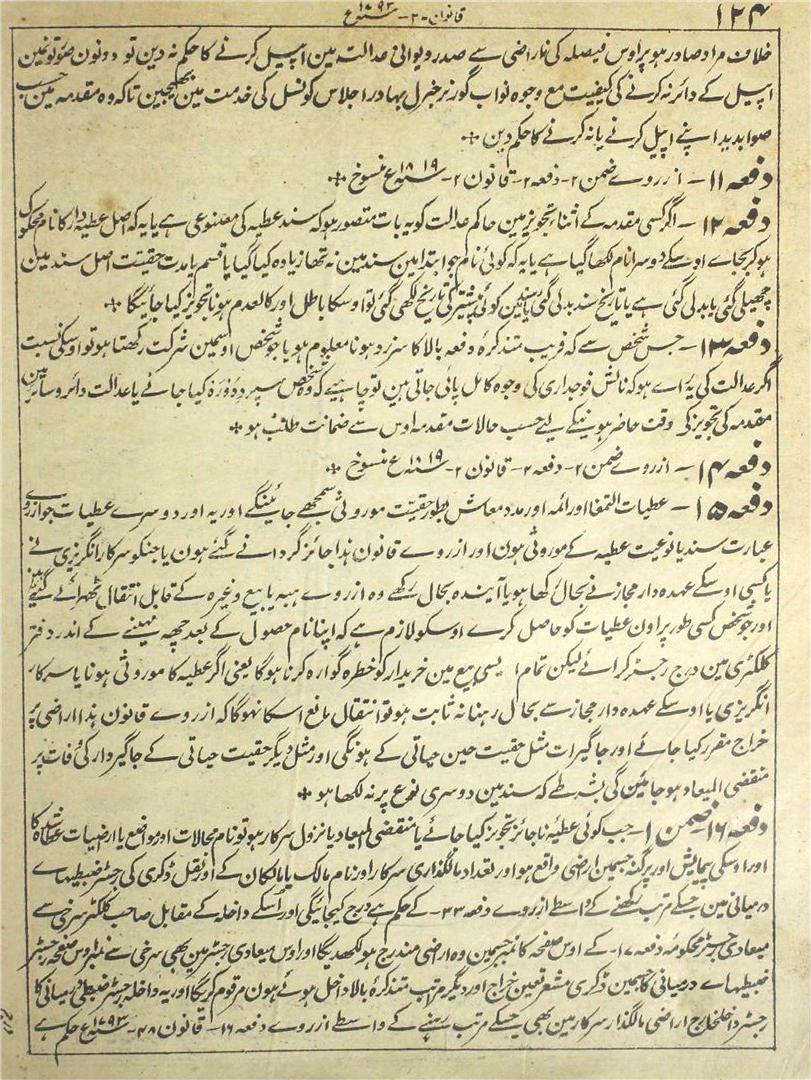 ۱۲۴
قانون - ۲ - ۱۷۹۳ سنہ ع
خلاف مراد صادر ہو پر اوس فیصلہ کی ناراضی سے صدر دیوانی عدالت مین اپیل کرنے کا حکم نہ دین تو دونون صورتونمین
اپیل کے دائر نہ کرنے کی کیفیت مع وجوہ نواب گورنر جنرل بہادر اجلاس کونسل کی خدمت مین بھیجین تاکہ وہ مقدمہ مین حسب
صوابدید اپنے اپیل کرنے یا نہ کرنے کا حکم دین
دفعہ ۱۱ - ازروے ضمن ۲ - دفعہ ۲ - قانون ۲ - ۱۸۱۹ سنہ ع منسوخ
دفعہ ۱۲ - اگر کسی مقدمہ کے اثناء تجویز مین حاکم عدالت کو یہ بات متصور ہو کہ سند عطیہ کی مصنوعی ہے یا یہ کہ اصل عطیہ دار کا نام محکوک
ہو کر بجاے اوسکے دوسرا نام لکھا گیا ہے یا یہ کہ کوئی نام جو ابتدا مین سند مین نہ تھا زیادہ کیا گیا یا قسم یا مدت حقیت اصل سند مین
چھیلی گئی یا بدلی گئی ہے یا تاریخ سند بدلی گئی یا سند مین کوئی پیشتر کی تاریخ لکھی گئی تو اوسکا باطل اور کالعدم ہونا تجویز کیا جائیگا
دفعہ ۱۳ - جس شخص سے کہ فریب متذکرہ دفعہ بالا کا سرزد ہونا معلوم ہو یا جو شخص اوسمین شرکت رکھتا ہو تو اوسکی نسبت
اگر عدالت کی یہ راے ہو کہ نالش فوجداری کی وجوہ کامل پائی جاتی ہین تو چاہیے کہ وہ شخص سپرد دورہ کیا جائے یا عدالت دائر و سائر مین
مقدمہ کی تجویز کی وقت حاضر ہونیکے لیے حسب حالات مقدمہ اوس سے ضمانت طلب ہو
دفعہ ۱۴ - ازروے ضمن ۲ - دفعہ ۲ - قانون ۲ - ۱۸۱۹ سنہ ع منسوخ
دفعہ ۱۵ - عطیات التمغا اور ائمہ اور مدد معاش بطور حقیت موروثی سمجھے جائینگے اور یہ اور دوسرے عطیات جو ازروے
عبارت سند یا نوعیت عطیہ کے موروثی ہون اور ازروے قانون ہذا جائز گردانے گئے ہون یا جنکو سرکار انگریزی نے
یا کسی اوسکے عہدہ دار مجاز نے بحال رکھا ہو یا آیندہ بحال رکھے وہ ازروے ہبہ یا بیع وغیرہ کے قابل انتقال ٹھہرائے گئے ہین
اور جو شخص کسی طور پر اون عطیات کو حاصل کرے اوسکو لازم ہے کہ اپنا نام حصول کے بعد چھہ مہینے کے اندر دفتر
کلکٹری مین درج رجسٹر کرائے لیکن تمام ایسی بیع مین خریدار کو خطرہ گوارہ کرنا ہوگا یعنی اگر عطیہ کا موروثی ہونا یا سرکار
انگریزی یا اوسکے عہدہ دار مجاز سے بحال رہنا نہ ثابت ہو تو انتقال مانع اسکا نہوگا کہ ازروے قانون ہذا اراضی پر
خراج مقرر کیا جائے اور جاگیرات مثل حقیت حین حیاتی کے ہونگی اور مثل دیگر حقیت حیاتی کے جاگیردار کی وفات پر
منقضی المیعاد ہو جائین گی بشرطے کہ سند مین دوسری نوع پر نہ لکھا ہو
دفعہ ۱۶ - ضمن ۱ - جب کوئی عطیہ ناجائز تجویز کیا جائے یا منقضی المیعاد یا نزول سرکار ہو تو نام محالات اور مواضع یا ارضیات عطا شدہ کا
اور اوسکی پیمایش اور پرگنہ جسمین اراضی واقع ہو اور تعداد مالگذاری سرکار اور نام مالک یا مالکان کے اور نقل ڈگری کی رجسٹر ضبطیہاے
درمیانی مین جسکے مرتب رکھنے کے واسطے ازروے دفعہ ۳۳ - کے حکم ہے درج کیجائیگی اور اسکے داخلہ کے مقابل صاحب کلکٹر سرخی سے
میعادی رجسٹر محکومہ دفعہ ۱۷ - کے اوس صفحہ کا نمبر جسمین وہ اراضی مندرج ہو لکھدیگا اور اوس میعادی رجسٹر مین بھی سرخی سے نمبر اوس صفحہ رجسٹر
ضبطیہاے درمیانی کا جسمین ڈگری مشعر تعین خراج اور دیگر مراتب متذکرہ بالا داخل ہوئے ہون مرقوم کریگا اور یہ داخلہ رجسٹر ضبطی درمیانی کا
رجسٹر داخلخارج اراضی مالگذار سرکار مین بھی جسکے مرتب رہنے کے واسطے ازروے دفعہ ۱۶ - قانون ۴۸ - ۱۷۹۳ سنہ ع حکم ہے